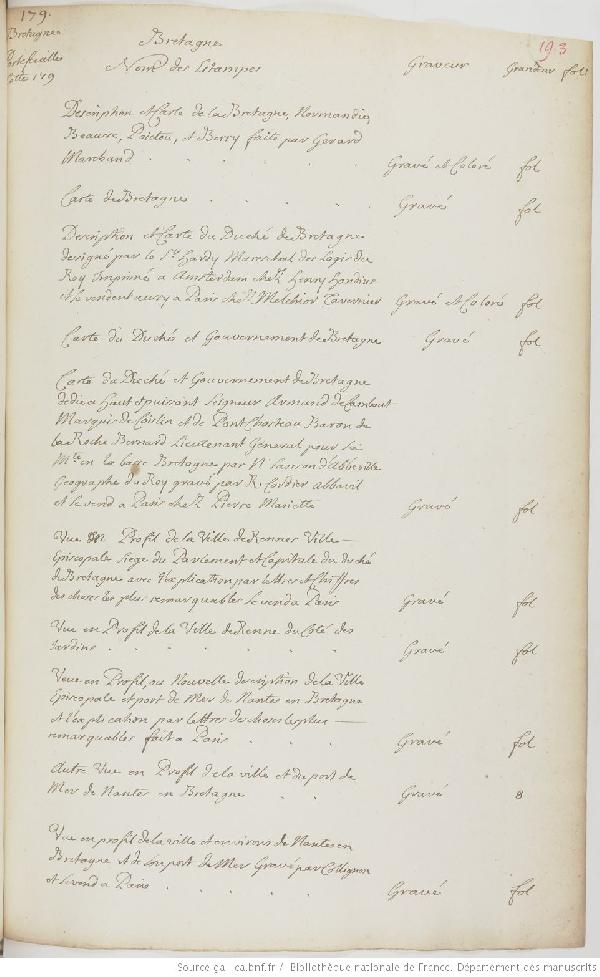 179.
Bretagne
Portefeuilles
Cotte 179
193
Bretagne
Nom des Estampes Graveur Grandeur fol.
Description et Carte de la Bretagne, Normandie,
Beauce, Poictou, et Berry faite par Gerard
Marchand . . . . Gravé et Coloré fol
Carte de Bretagne . . . . Gravé fol
Description et Carte du Duché de Bretagne
designé par le Sr. Hardy Mareschal des Logis du
Roy Imprimé a Amsterdam chez Henry Hondius
et se vendent aussy a Paris chez Melchior Tavernier Gravé et Coloré fol
Carte du Duché et Gouvernement de Bretagne Gravé fol
Carte du Duché et Gouvernement de Bretagne
dediée a Haut et puissant Seigneur Armand de Cambout
Marquis de Coislin et de Pont Chasteau Baron de
la Roche Bernard Lieutenant General pour sa
Mte. en la basse Bretagne par N Sanson d'Abbeville
Geographe du Roy gravé par R. Cordier Abbavil
et se vend a Paris chez Pierre Mariette Gravé fol
Vue en Profil de la Ville de Rennes Ville
Episcopale Siege du Parlement et Capitale du Duché
de Bretagne avec l'explication par lettres et Chiffres
des choses les plus remarquables se vend a Paris Gravé fol
Vue en Profil de la Ville de Renne du Coté des
Jardins . . . . Gravé fol
Veue en Profil, ou Nouvelle description de la Ville
Episcopale et port de Mer de Nantes en Bretagne
et l'explication par lettres des choses les plus
remarquables fait a Paris . . Gravé fol
Autre Vue en Profil de la ville et du port de
Mer de Nantes en Bretagne . . Gravé 8
Vue en profil de la ville et environs de Nantes en
Bretagne et de son port de Mer Gravé par Collignon
et se vend a Paris . . . . Gravé fol
Source gallica.bnf.fr / Bibliothèque nationale de France. Département des manuscrits